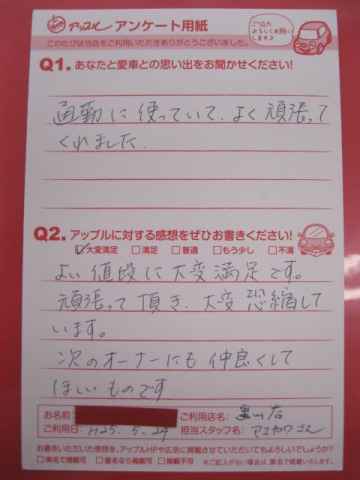 アップル アンケート用紙
このたびは当店をご利用いただきありがとうございました。
ご協力
よろしくお願い
します♪
Q1. あなたと愛車との思い出をお聞かせください!
通勤に使っていて、よく頑張って
くれました。
Q2. アップルに対する感想をぜひお書きください!
☑大変満足 □満足 □普通 □もう少し □不満
よい値段に大変満足です。
頑張って頂き、大変恐縮して
います。
次のオーナーにも仲良くして
ほしいものです。
お名前
ご利用店名: 店
ご利用日: H25. 5. 29 担当スタッフ名: さん
お書きいただいた感想を、アップルHPや広告に掲載させていただいてもよろしいでしょうか?
□実名で掲載可 □匿名なら掲載可 □掲載不可 ※ご記入がない場合は、匿名で掲載いたします。